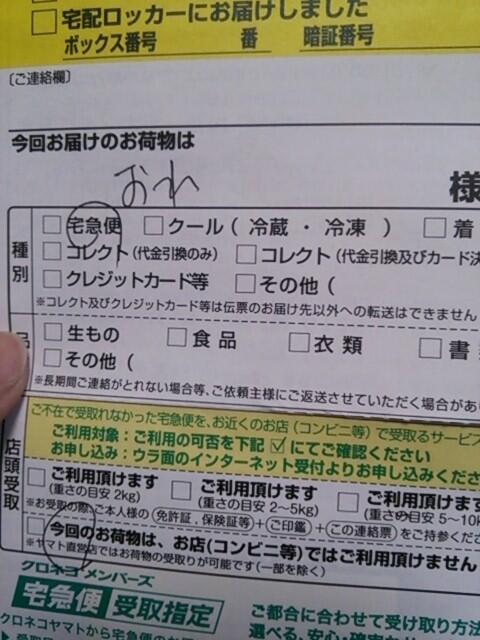 □ 宅配ロッカーにお届けしました
ボックス番号 番 暗証番号
〔ご連絡欄〕
今回お届けのお荷物は
おれ 様
種別
□ 宅急便 □ クール ( 冷蔵 ・ 冷凍 ) □ 着
□ コレクト (代金引換のみ) □ コレクト (代金引換及びカード決
□ クレジットカード等 □ その他 (
※コレクト及びクレジットカード等は伝票のお届け先以外への転送はできません
□ 生もの □ 食品 □ 衣類 □ 書
□ その他 (
※長期間ご連絡がとれない場合等、ご依頼主様にご返送させていただく場合があ
店頭受取
ご不在で受取れなかった宅急便を、お近くのお店(コンビニ等)で受取るサービス
ご利用対象:ご利用の可否を下記☑にてご確認ください
お申し込み:ウラ面のインターネット受付よりお申し込みくださ
□ ご利用頂けます □ ご利用頂けます □ ご利用頂けます
(重さの目安 2kg) (重さの目安 2~5kg) (重さの目安 5~10k
※お受取の際、ご本人様の(免許証,保険証等)+(ご印鑑)+(この連絡票)をご持参くださ
□ 今回のお荷物は、お店(コンビニ等)ではご利用頂けません
※ヤマト直営店ではお荷物の受取りが可能です(一部を除く)
クロネコ メンバーズ
宅急便 受取指定
クロネコヤマトから宅急便のお
ご都合に合わせて受け取り方
選べる、安心・確